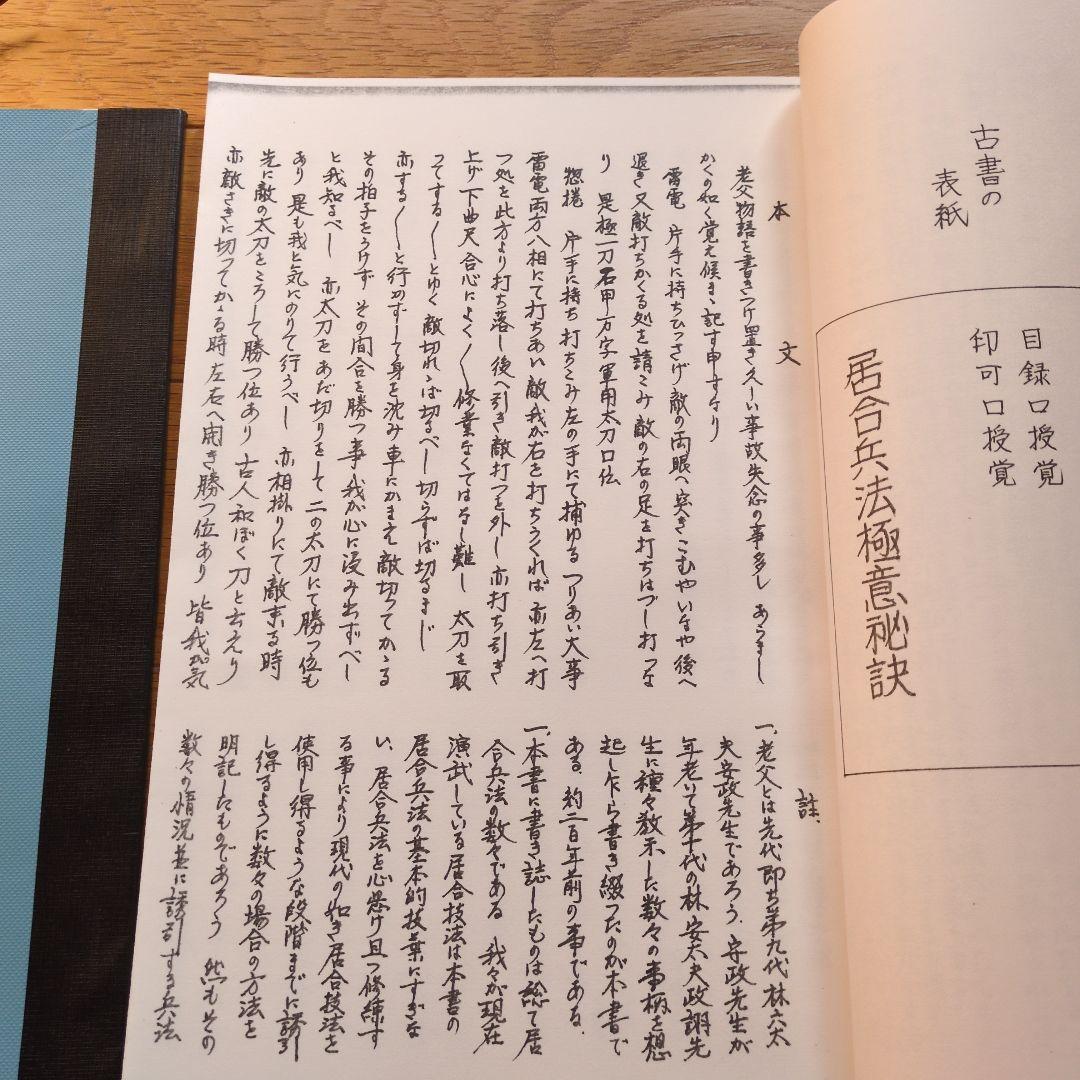 古書の
表紙
目録口授覚
印可口授覚
居合兵法極意祕訣
本文
老父物語を書きつけ置き久しい事故失念の事多し あらまし
かくの如く覚え候まゝ記す申すなり
雷電 片手に持ちひっさげ敵の両眼へ突きこむやいなや後へ
退き又敵打ちかくる処を請こみ敵の右の足を打ちはづし打つな
り 是極一刀石甲万字軍用太刀口伝
惣捲 片手に持ち打ちこみ左の手にて捕ゆる つりあい大事
雷電両方八相にて打ちあい敵我が右を打ちうくれば亦左へ打
つ処を此方より打ち落し後へ引き敵打つを外し亦打ち引き
上げ下曲尺合心によく〱修業なくてはなし難し 太刀を取
つてする〱とゆく敵切れゝば切るべし 切らずば切るまじ
亦する〱と行かずして身を沈み車にかまえ敵切つてかゝる
その拍子をうけず その間合を勝つ事 我が心に浸み出ずべし
と我知るべし 亦太刀をあだ切りをして 二の太刀にて勝つ位も
あり 是も我と気にのりて行うべし 亦相掛りにて敵来る時
先に敵の太刀をころして勝つ位あり 古人和ぼく刀と云えり
亦敵さきに切つてかゝる時左右へ開き勝つ位あり 皆我が気
註、
一、老父とは先代即ち第九代林六太
夫安政先生であろう、安政先生が
年老いて第十代の林安太夫政詡先
生に種々教示した数々の事柄を想
起し乍ら書き綴つたのが本書で
ある、約二百年前の事である、
一、本書に書き誌したものは総て居
合兵法の数々である 我々が現在
演武している居合技法は本書の
居合兵法の基本的技葉にすぎな
い、居合兵法を心懸け且つ修練す
る事により現代の如き居合技法を
使用し得るような段階までに誘引
し得るように数々の場合の方法を
明記したものであろう 然もその
数々の情況並に誘引する兵法